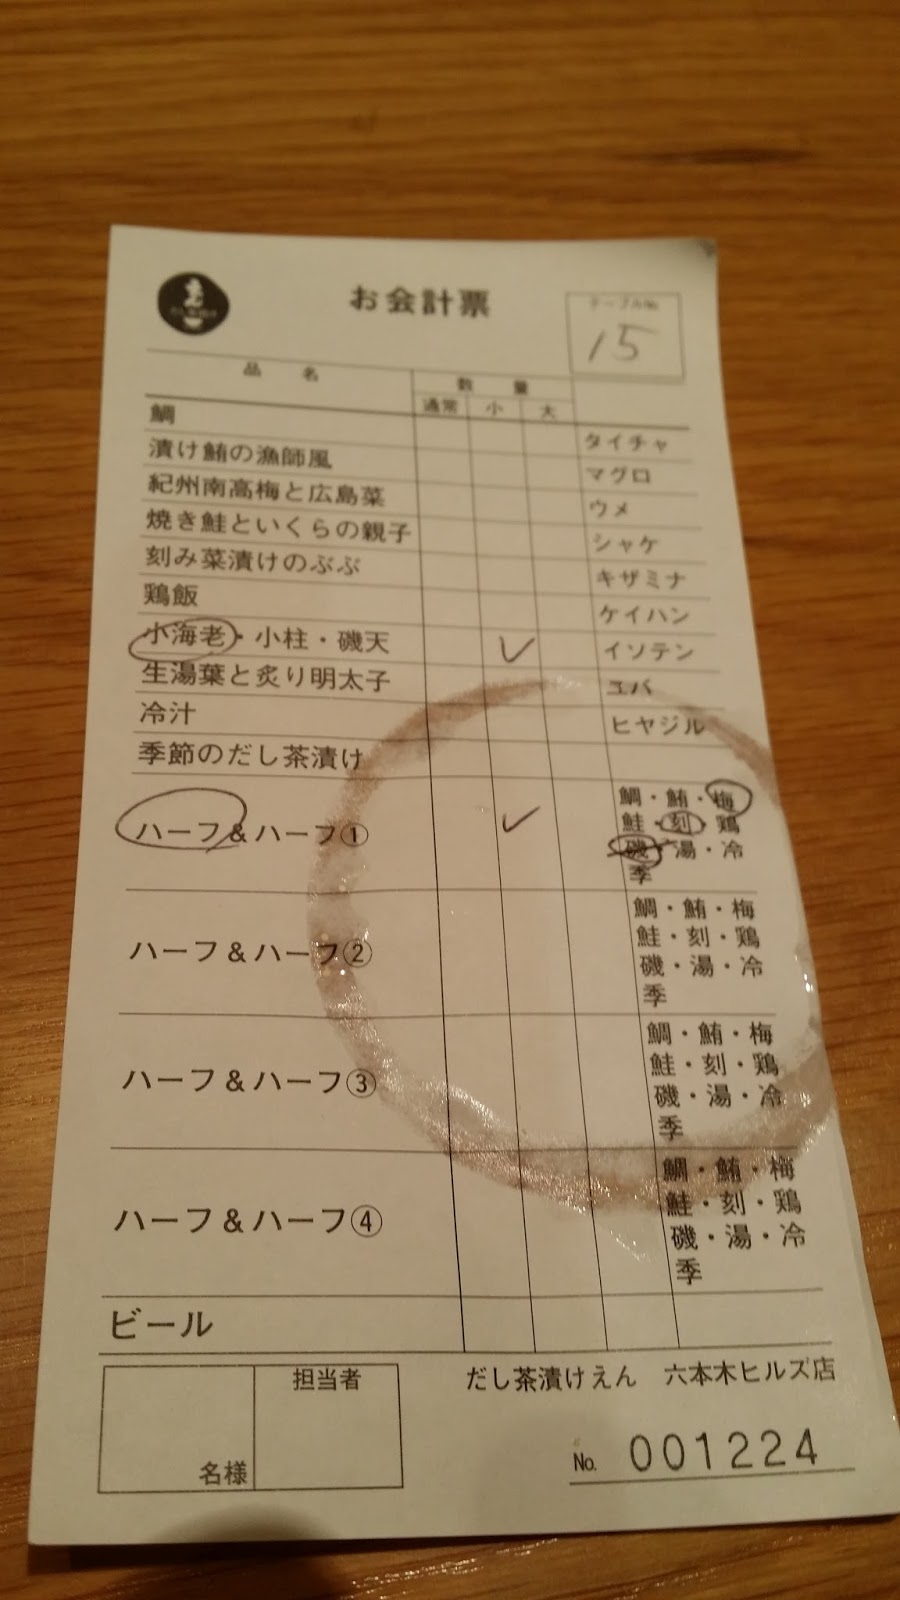 お会計票
テーブルNo.
15
品名
数量
通常 小 大
鯛 タイチャ
漬け鮪の漁師風 マグロ
紀州南高梅と広島菜 ウメ
焼き鮭といくらの親子 シャケ
刻み菜漬けのぶぶ キザミナ
鶏飯 ケイハン
小海老・小柱・磯天 ✓ イソテン
生湯葉と炙り明太子 ユバ
冷汁 ヒヤジル
季節のだし茶漬け
ハーフ&ハーフ① ✓
鯛・鮪・梅
鮭・刻・鶏
磯・湯・冷
季
ハーフ&ハーフ②
鯛・鮪・梅
鮭・刻・鶏
磯・湯・冷
季
ハーフ&ハーフ③
鯛・鮪・梅
鮭・刻・鶏
磯・湯・冷
季
ハーフ&ハーフ④
鯛・鮪・梅
鮭・刻・鶏
磯・湯・冷
季
ビール
名様
担当者
だし茶漬けえん 六本木ヒルズ店
No. 001224